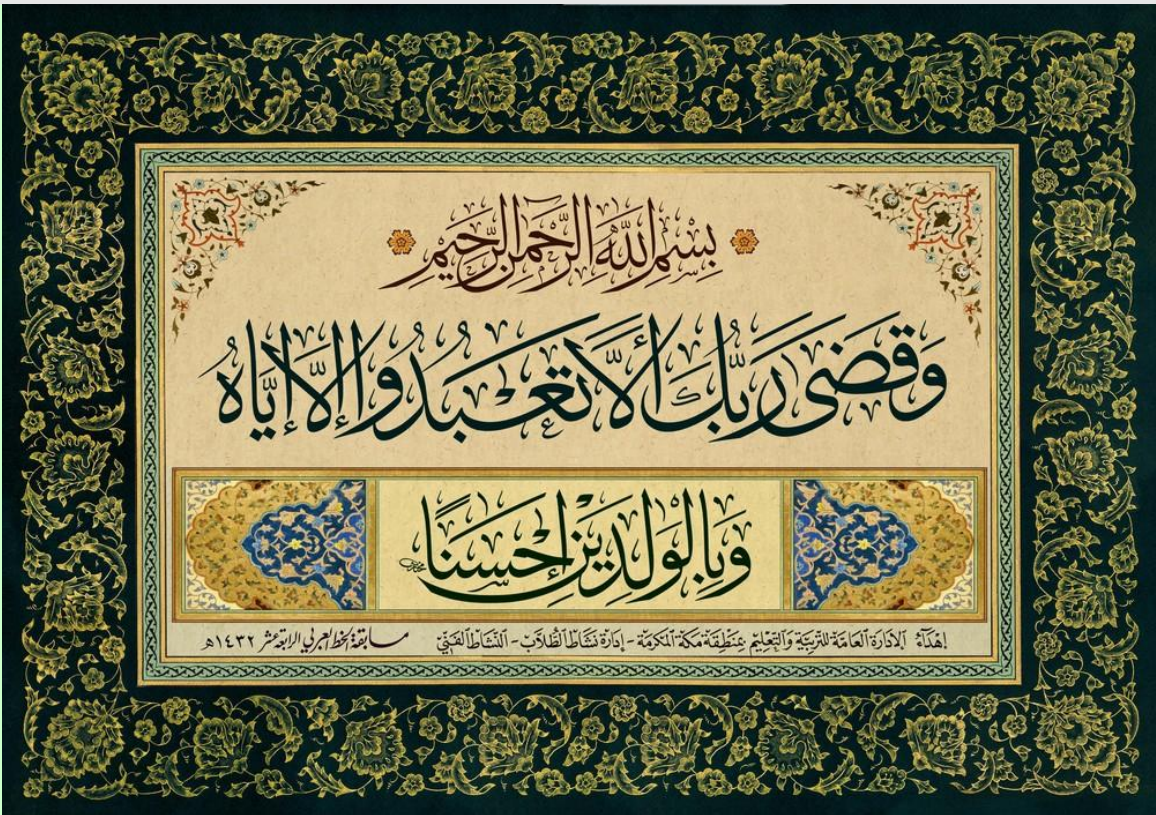 بِسْمِ اللَّهِ الرَّحْمَٰنِ الرَّحِيمِ
وَقَضَىٰ رَبُّكَ أَلَّا تَعْبُدُوا إِلَّا إِيَّاهُ
وَبِالْوَالِدَيْنِ إِحْسَانًا
إهداء الإدارة العامة للتربية والتعليم بمنطقة مكة المكرمة - إدارة نشاط الطلاب - النشاط الفني مسابقة الخط العربي الرابعة عشر ١٤٣٢هـ